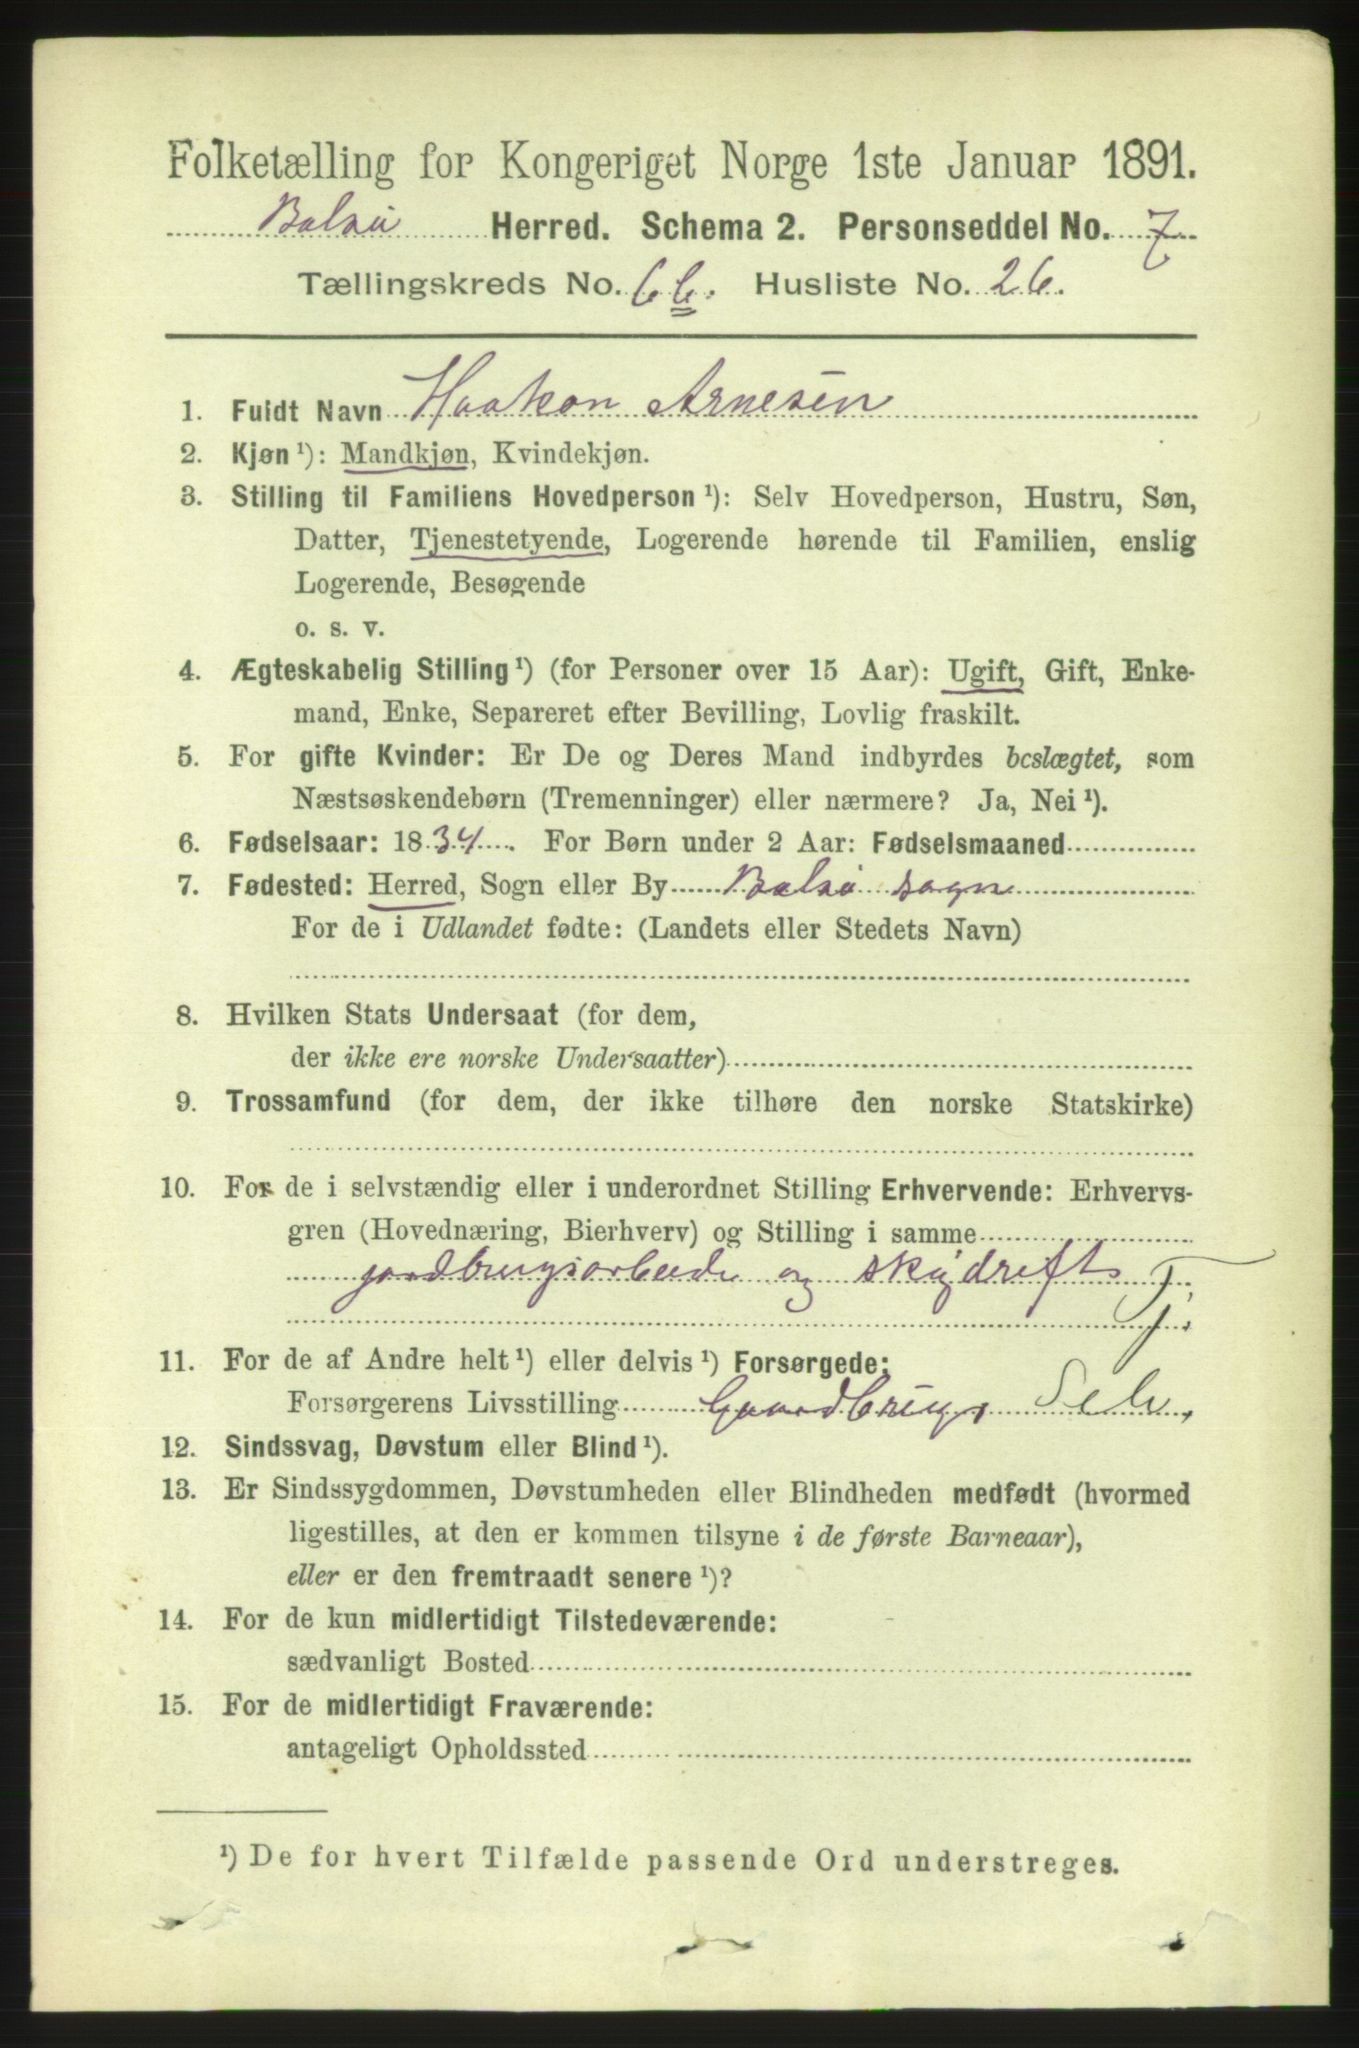 Folketælling for Kongeriget Norge 1ste Januar 1891.
Balsū Herred. Schema 2. Personseddel No. 7
Tællingskreds No. 6 b. Husliste No. 26.
1. Fuldt Navn Haakon Arnesen
2. Kjøn ¹): Mandkjøn, Kvindekjøn.
3. Stilling til Familiens Hovedperson ¹): Selv Hovedperson, Hustru, Søn,
Datter, Tjenestetyende, Logerende hørende til Familien, enslig
Logerende, Besøgende
o. s. v.
4. Ægteskabelig Stilling ¹) (for Personer over 15 Aar): Ugift, Gift, Enke-
mand, Enke, Separeret efter Bevilling, Lovlig fraskilt.
5. For gifte Kvinder: Er De og Deres Mand indbyrdes beslægtet, som
Næstsøskendebørn (Tremenninger) eller nærmere? Ja, Nei ¹).
6. Fødselsaar: 1834. For Børn under 2 Aar: Fødselsmaaned
7. Fødested: Herred, Sogn eller By Balsū sogn
For de i Udlandet fødte: (Landets eller Stedets Navn)
8. Hvilken Stats Undersaat (for dem,
der ikke ere norske Undersaatter)
9. Trossamfund (for dem, der ikke tilhøre den norske Statskirke)
10. For de i selvstændig eller i underordnet Stilling Erhvervende: Erhvervs-
gren (Hovednæring, Bierhverv) og Stilling i samme
jordbrugsarbeide og T.
j.
11. For de af Andre helt ¹) eller delvis ¹) Forsørgede:
Forsørgerens Livsstilling Gaardbrug, Selv.
12. Sindssvag, Døvstum eller Blind ¹).
13. Er Sindssygdommen, Døvstumheden eller Blindheden medfødt (hvormed
ligestilles, at den er kommen tilsyne i de første Barneaar),
eller er den fremtraadt senere ¹)?
14. For de kun midlertidigt Tilstedeværende:
sædvanligt Bosted
15. For de midlertidigt Fraværende:
antageligt Opholdssted
¹) De for hvert Tilfælde passende Ord understreges.